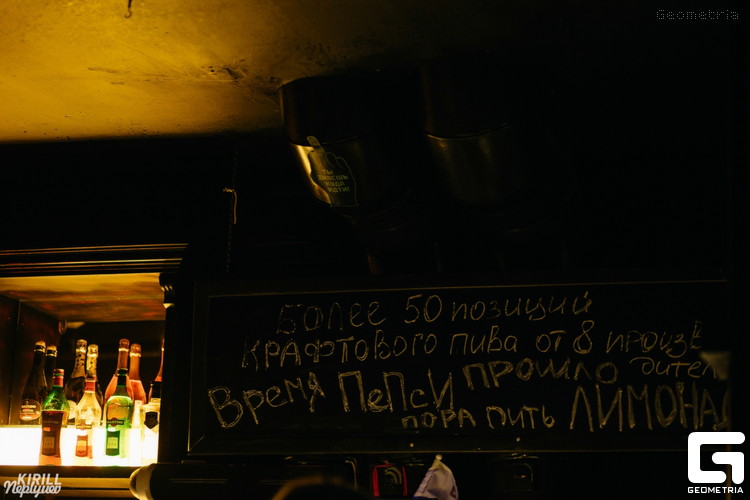 Geometria
ТЫ
ЗНАЕШЬ
КУДА
ИДТИ!
БОЛЕЕ 50 ПОЗИЦИЙ
КРАФТОВОГО ПИВА ОТ 8 ПРОИЗВ
ДИТЕЛ
ВРЕМЯ ПЕПСИ ПРОШЛО
ПОРА ПИТЬ ЛИМОНАД
KIRILL
Перцуис
GEOMETRIA